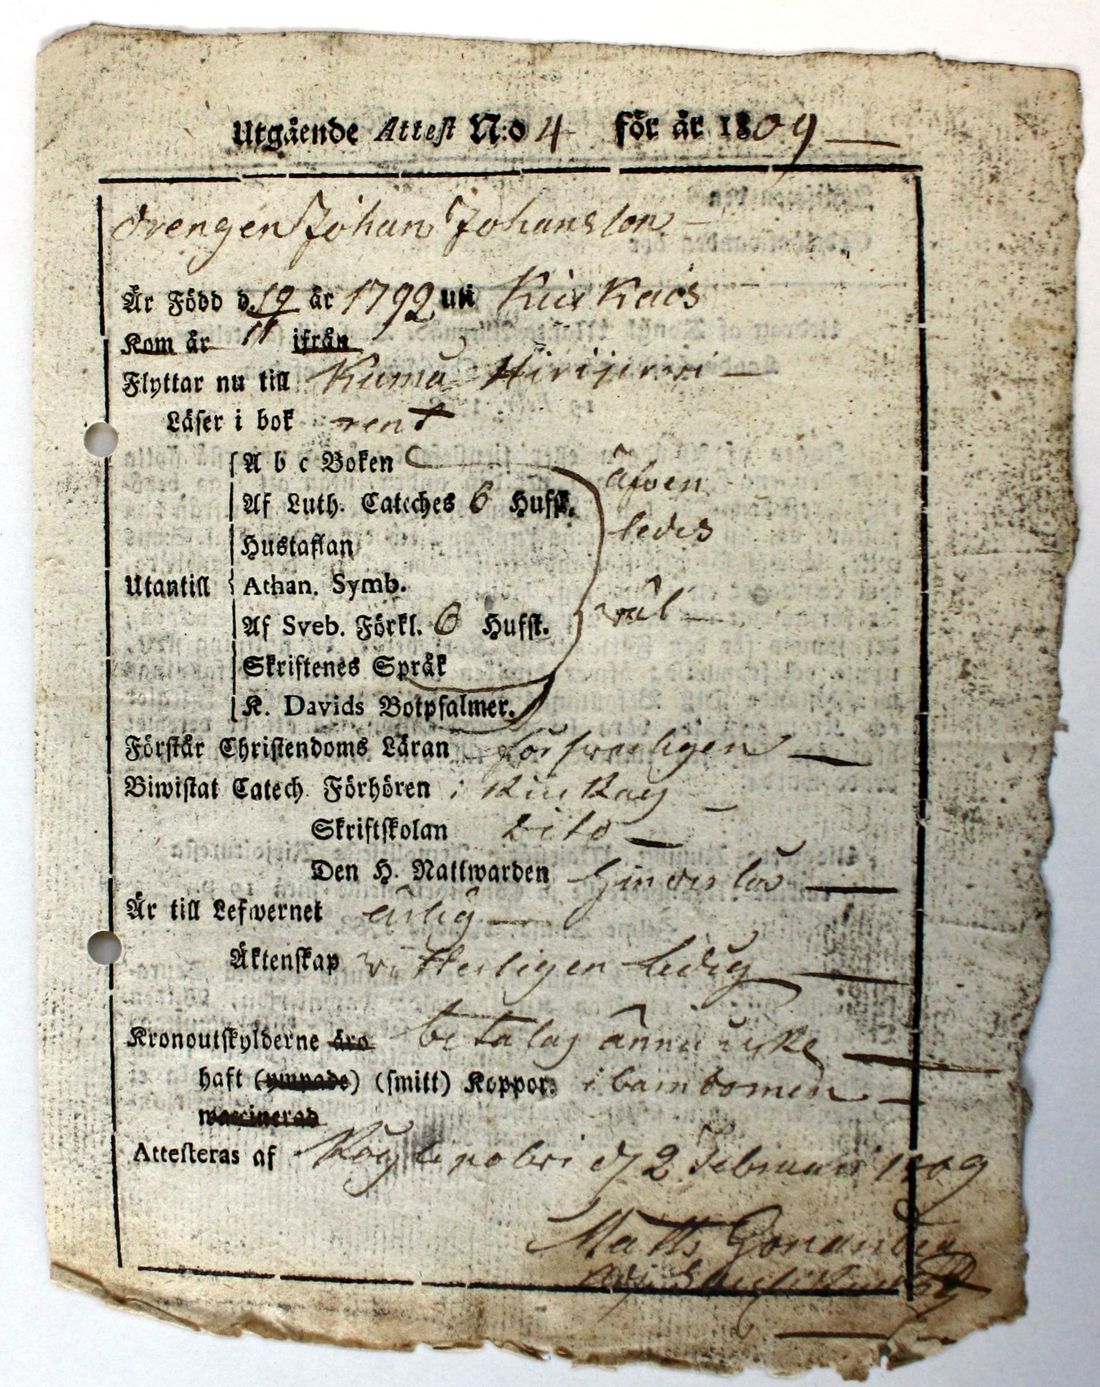 Utgående Attest N:o 4 för år 1809
Drengen Johan Johansson
Är Född d. 19/11 år 1792 uti
Kom år ifrån
Flyttar nu till
Läser i bok rent
A b c Boken
Af Luth. Cateches 6 Hufst. äfven
Hustaflan ledes
Utantill Athan. Symb.
Af Sveb. Förkl. 6 Hufst. väl
Skriftenes Språk
K. Davids Botpsalmer.
Förstår Christendoms Läran försvarligen
Biwistat Catech Förhören i
Skriftskolan dito
Den H. Nattwarden
Är till Lefwernet ärlig
Äktenskap vitterligen ledig
Kronoutskylderne äro betalas ännu icke
haft (ympade) (smitt) Koppor. i barndomen
vaccinerad
Attesteras af d 2 Februari 1809
Matts